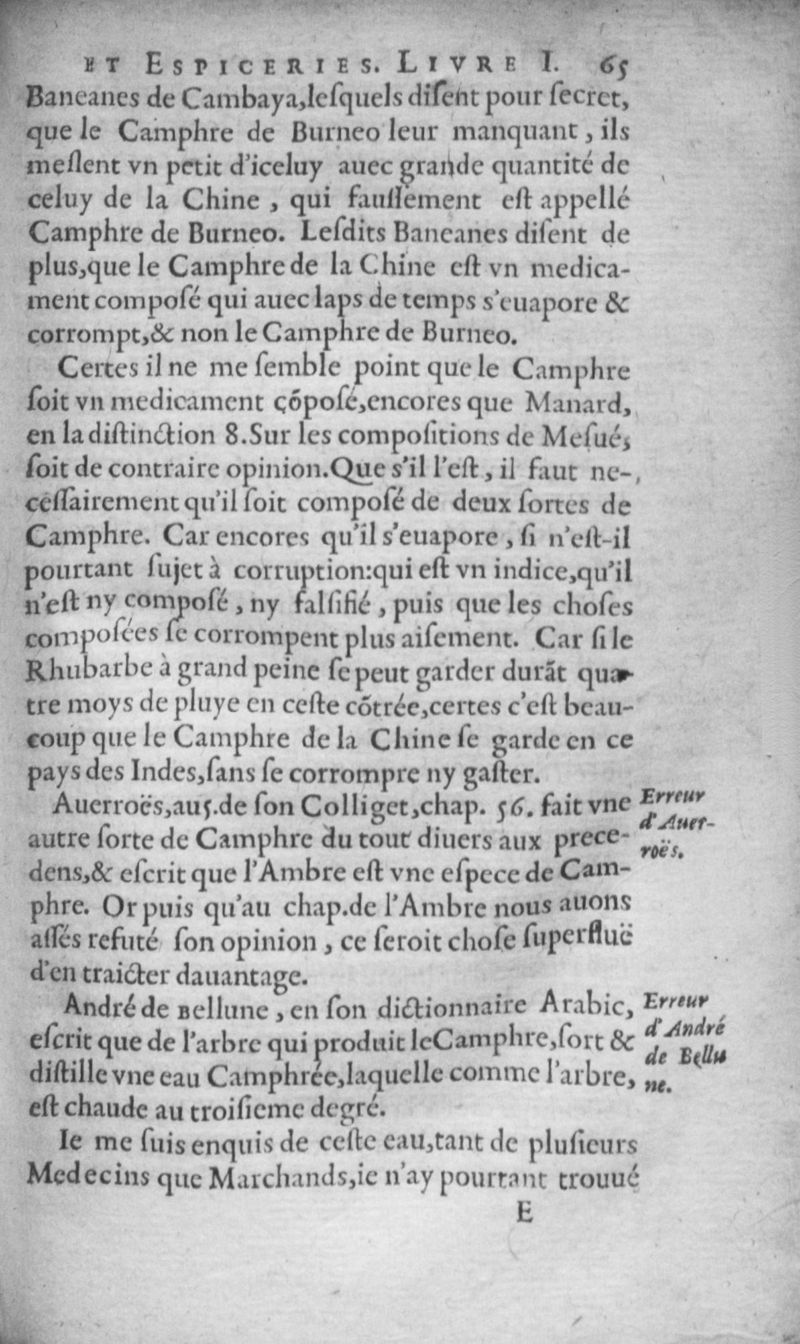 ET ESPICERIES. LIVRE I. 65
Baneanes de Cambaya,leſquels diſent pour ſecret,
que le Camphre de Burneo leur manquant , ils
meſlent vn petit d'iceluy auec grande quantité de
celuy de la Chine , qui fauſſement eſt appellé
Camphre de Burneo. Leſdits Baneanes diſent de
plus,que le Camphre de la Chine eſt vn medica-
ment compoſé qui auec laps de temps s'euapore &
corrompt,& non le Camphre de Burneo.
Certes il ne me ſemble point que le Camphre
ſoit vn medicament çõpoſé,encores que Manard,
en la diſtinction 8.Sur les compoſitions de Meſué,
ſoit de contraire opinion.Que s'il l'eſt , il faut ne-
ceſſairement qu'il ſoit compoſé de deux ſortes de
Camphre. Car encores qu'il s'euapore , ſi n'eſt-il
pourtant ſujet à corruption:qui eſt vn indice,qu'il
n'eſt ny compoſé , ny falſifié , puis que les choſes
compoſées ſe corrompent plus aiſement. Car ſi le
Rhubarbe à grand peine ſe peut garder durãt qua-
tre moys de pluye en ceſte cõtrée,certes c'eſt beau-
coup que le Camphre de la Chine ſe garde en ce
pays des Indes,ſans ſe corrompre ny gaſter.
Auerroës,au 5.de ſon Colliget,chap. 56. fait vne
autre ſorte de Camphre du tout diuers aux prece-
dens,& eſcrit que l'Ambre eſt vne eſpece de Cam-
phre. Or puis qu'au chap.de l'Ambre nous auons
aſſés refuté ſon opinion , ce ſeroit choſe ſuperfluë
d'en traicter dauantage.
Erreur
d'Auer-
roës.
André de Bellune , en ſon dictionnaire Arabic,
eſcrit que de l'arbre qui produit le Camphre,ſort &
diſtille vne eau Camphrée,laquelle comme l'arbre,
eſt chaude au troiſieme degré.
Erreur
d'André
de Bellu
ne.
Ie me ſuis enquis de ceſte eau,tant de pluſieurs
Medecins que Marchands,ie n'ay pourtant trouué
E